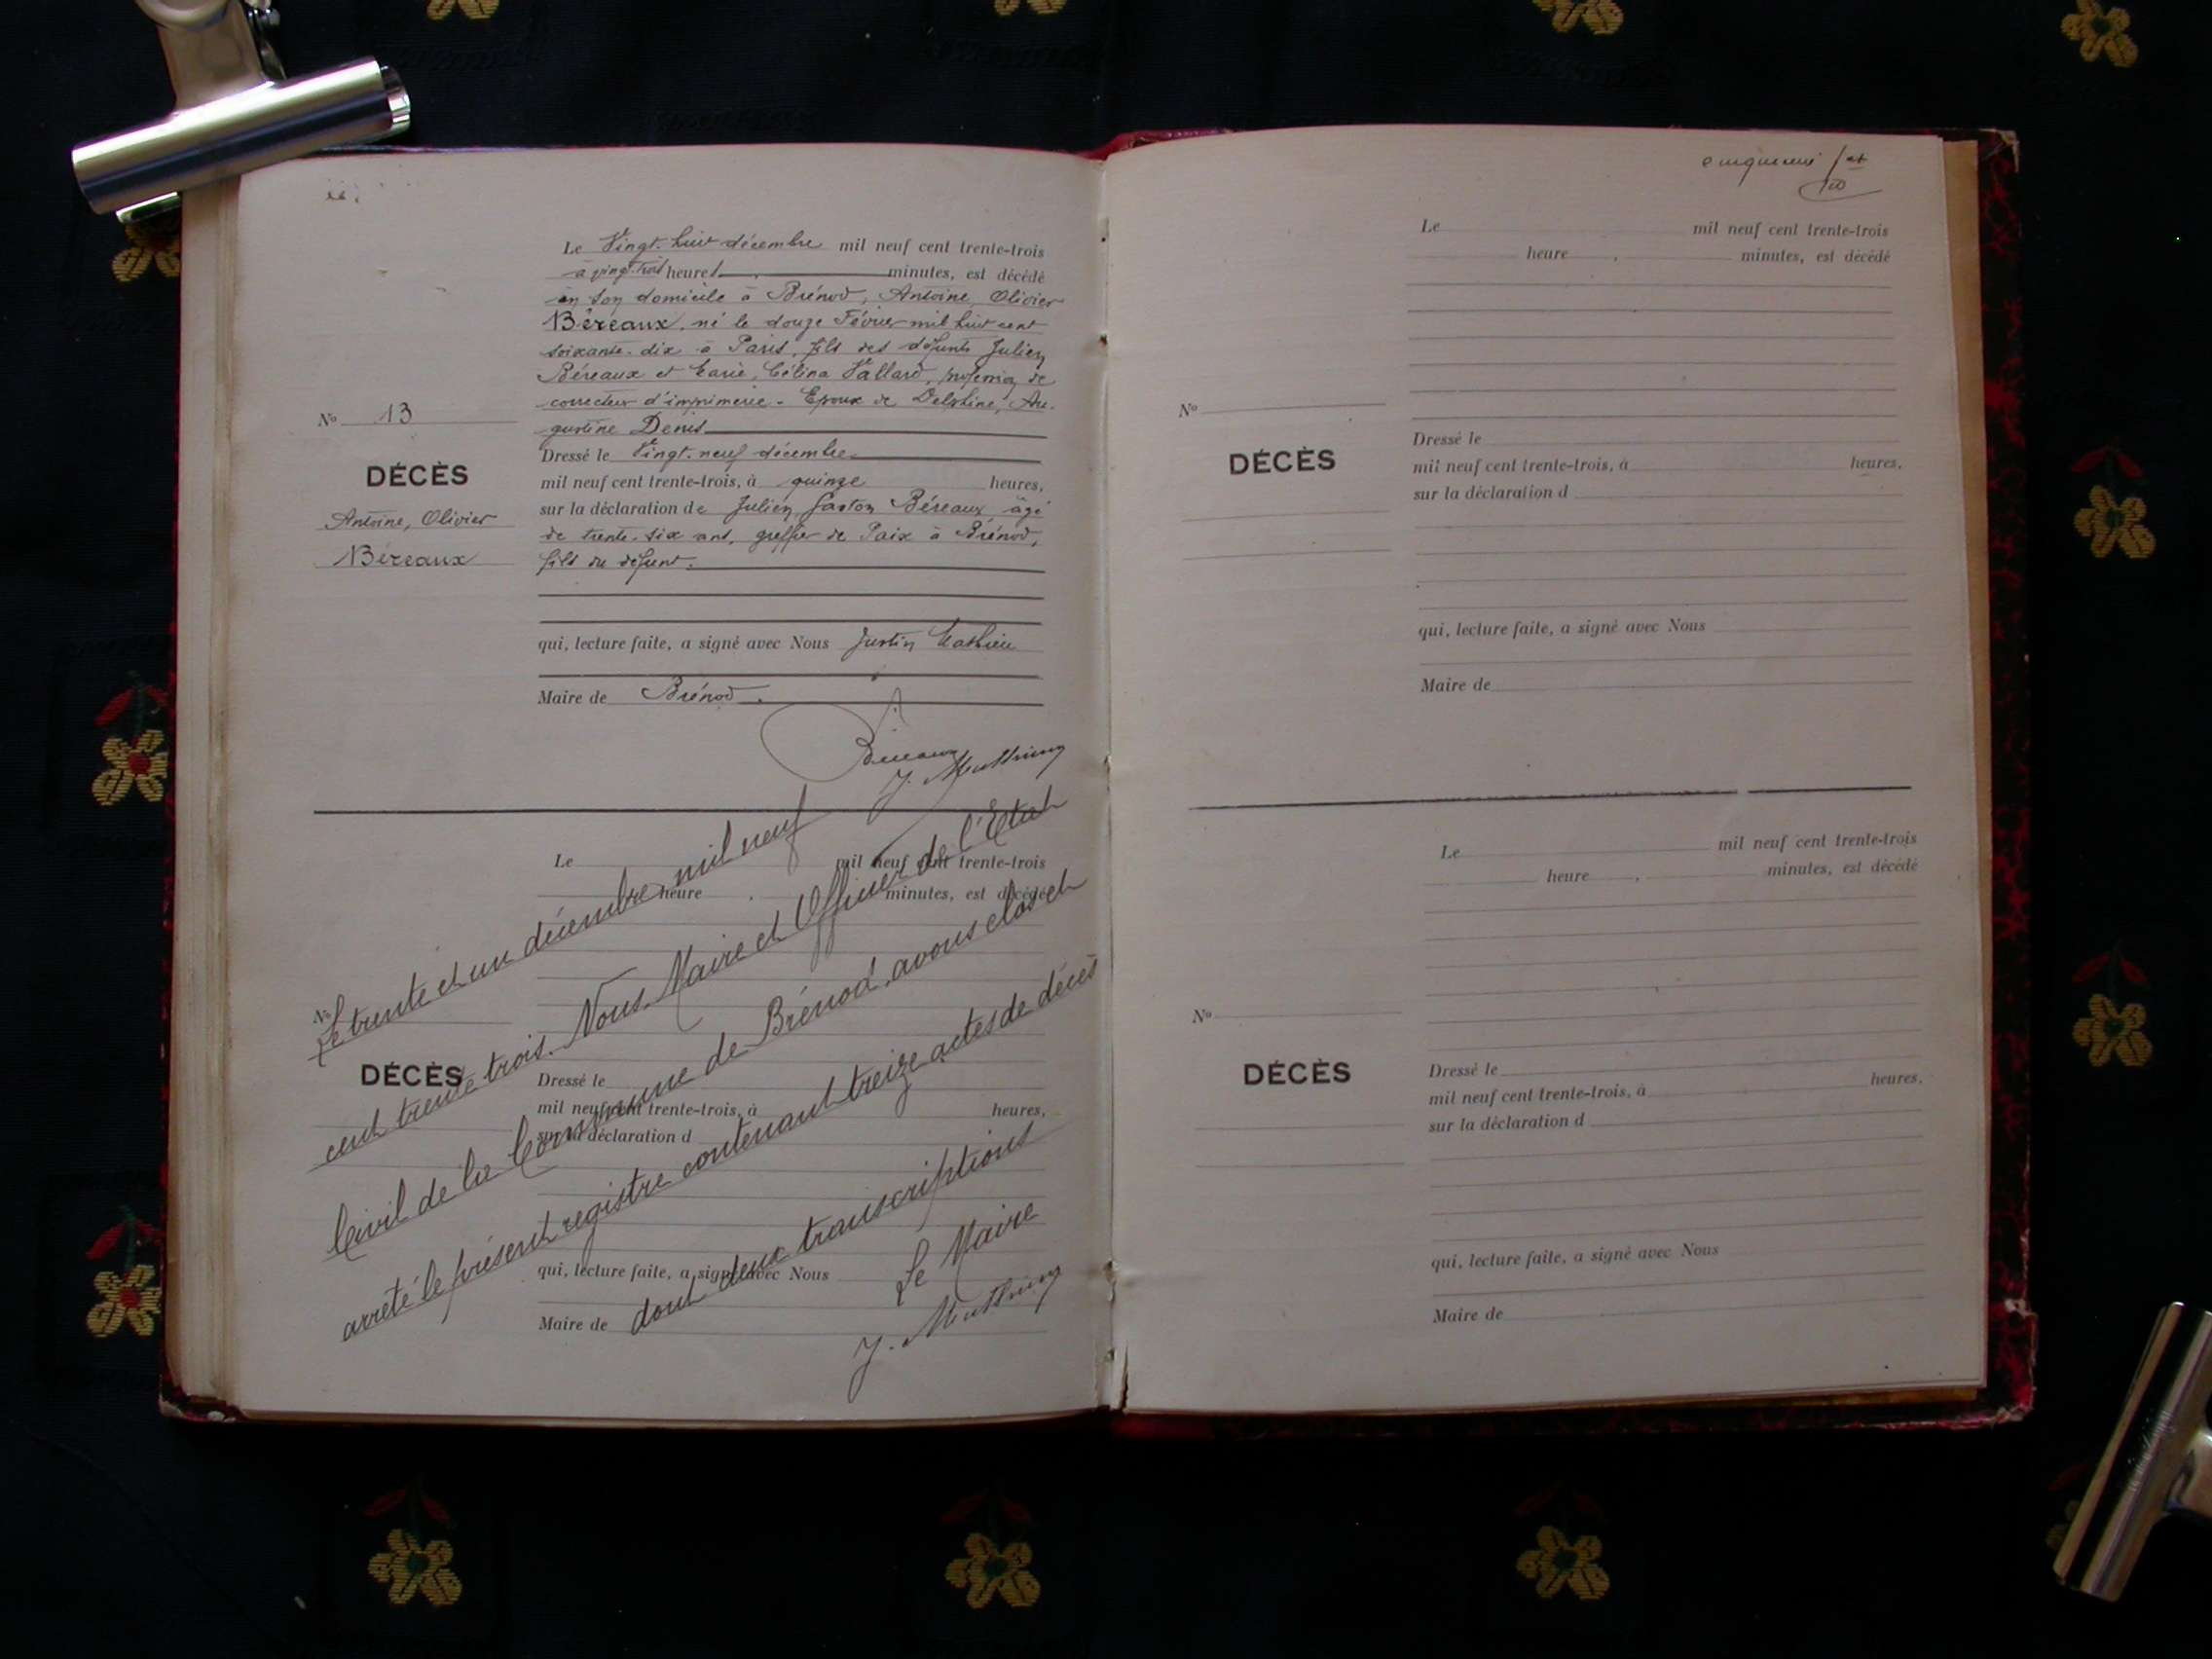 Le Vingt-huit décembre mil neuf cent trente-trois
à vingt-trois heures minutes, est décédé
en son domicile à Brénod, Antoine, Olivier
Béreaux, né le douze Février mil huit cent
soixante-dix à Paris, fils des défunts Julien
Béreaux et Marie, Célina Vallard, profession de
correcteur d'imprimerie - Epoux de Delphine, Au-
gustine Denis
Nº 13
DÉCÈS
Antoine, Olivier
Béreaux
Dressé le Vingt-neuf décembre
mil neuf cent trente-trois, à quinze heures,
sur la déclaration de Julien Gaston Béreaux âgé
de trente-six ans, greffier de Paix à Brénod,
fils du défunt.
qui, lecture faite, a signé avec Nous Justin Mathieu
Maire de Brénod.
Béreaux
J. Mathieu
Le mil neuf cent trente-trois
heure minutes, est décédé
Nº
DÉCÈS
Dressé le
mil neuf cent trente-trois, à heures,
sur la déclaration d
qui, lecture faite, a signé avec Nous
Maire de
Le trente et un décembre mil neuf
cent trente trois. Nous Maire et Officier de l'Etat
Civil de la Commune de Brénod, avons clos et
arrêté le présent registre contenant treize actes de décès
dont deux transcriptions
Le Maire
J. Mathieu
Le mil neuf cent trente-trois
heure minutes, est décédé
Nº
DÉCÈS
Dressé le
mil neuf cent trente-trois, à heures,
sur la déclaration d
qui, lecture faite, a signé avec Nous
Maire de
Le mil neuf cent trente-trois
heure minutes, est décédé
Nº
DÉCÈS
Dressé le
mil neuf cent trente-trois, à heures,
sur la déclaration d
qui, lecture faite, a signé avec Nous
Maire de